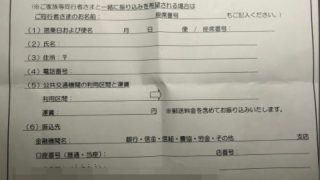 ※ご家族等同行者さまと一緒に振り込みを希望される場合は
ご同行者さまのお名前: 座席番号 もご記入ください。)
(1)搭乗日および便名 月 日 便 / 座席番号
(2)氏名
(3)住所:〒
(4)電話番号
(5)公共交通機関の利用区間と運賃
利用区間:
運賃: 円 ※郵送料金を含めてお振り込みいたします。
(6)振込先
金融機関名: 銀行・信金・信組・農協・労金・その他 支店
口座番号(普通・当座): 店番号